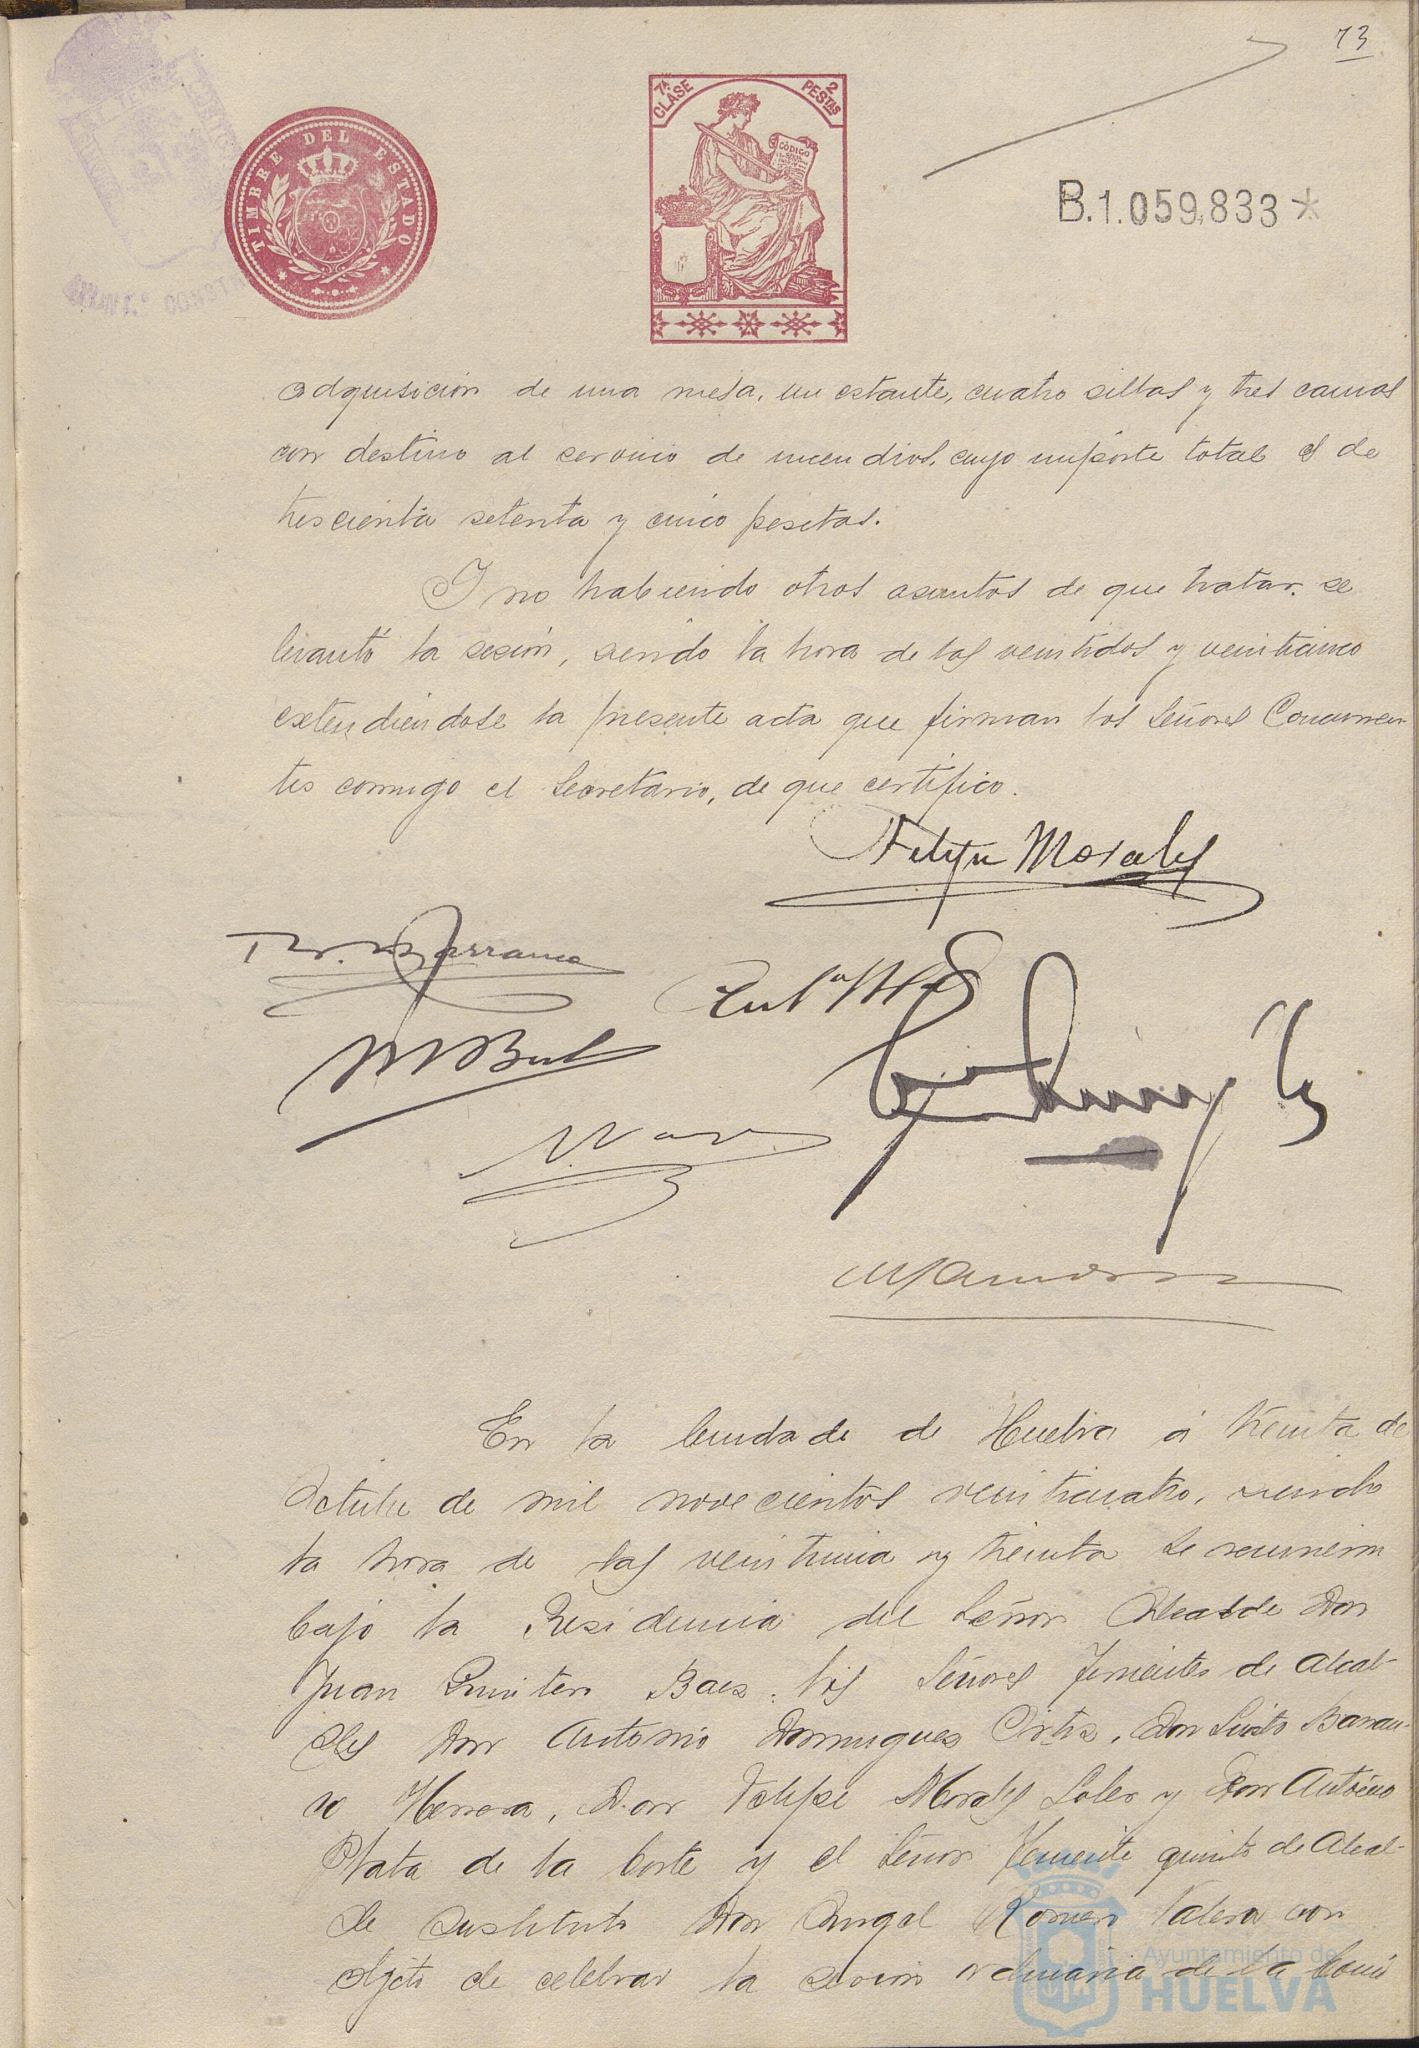 73
TIMBRE DEL ESTADO
7ª CLASE
2 PESTAS
CÓDIGO
B.1.059,833*
adquisición de una mesa, un estante, cuatro sillas y tres camas
con destino al servicio de incendios, cuyo importe total es de
trescienta setenta y cinco pesetas.
Y no habiendo otros asuntos de que tratar, se
levantó la sesión, siendo la hora de las veintidos y veinticinco
extendiendose la presente acta que firman los Señores Concurren-
tes conmigo el Secretario, de que certifico.
Felipe Morales
Barranco
En la Ciudad de Huelva á treinta de
Octubre de mil novecientos veinticuatro, siendo
la hora de las veintiuna y treinta se reunieron
bajo la Presidencia del Señor Alcalde Don
Juan Quintero Baez, los Señores Tenientes de Alcal-
des Don Antonio Dominguez Ortiz, Don Sixto Barran-
co Herrera, Don Felipe Morales Soler y Don Antonio
Plata de la Corte y el Señor Teniente quinto de Alcal-
de sustituto Don Angel Romero Valera con
objeto de celebrar la sesion ordinaria de la Comi
Ayuntamiento de
HUELVA